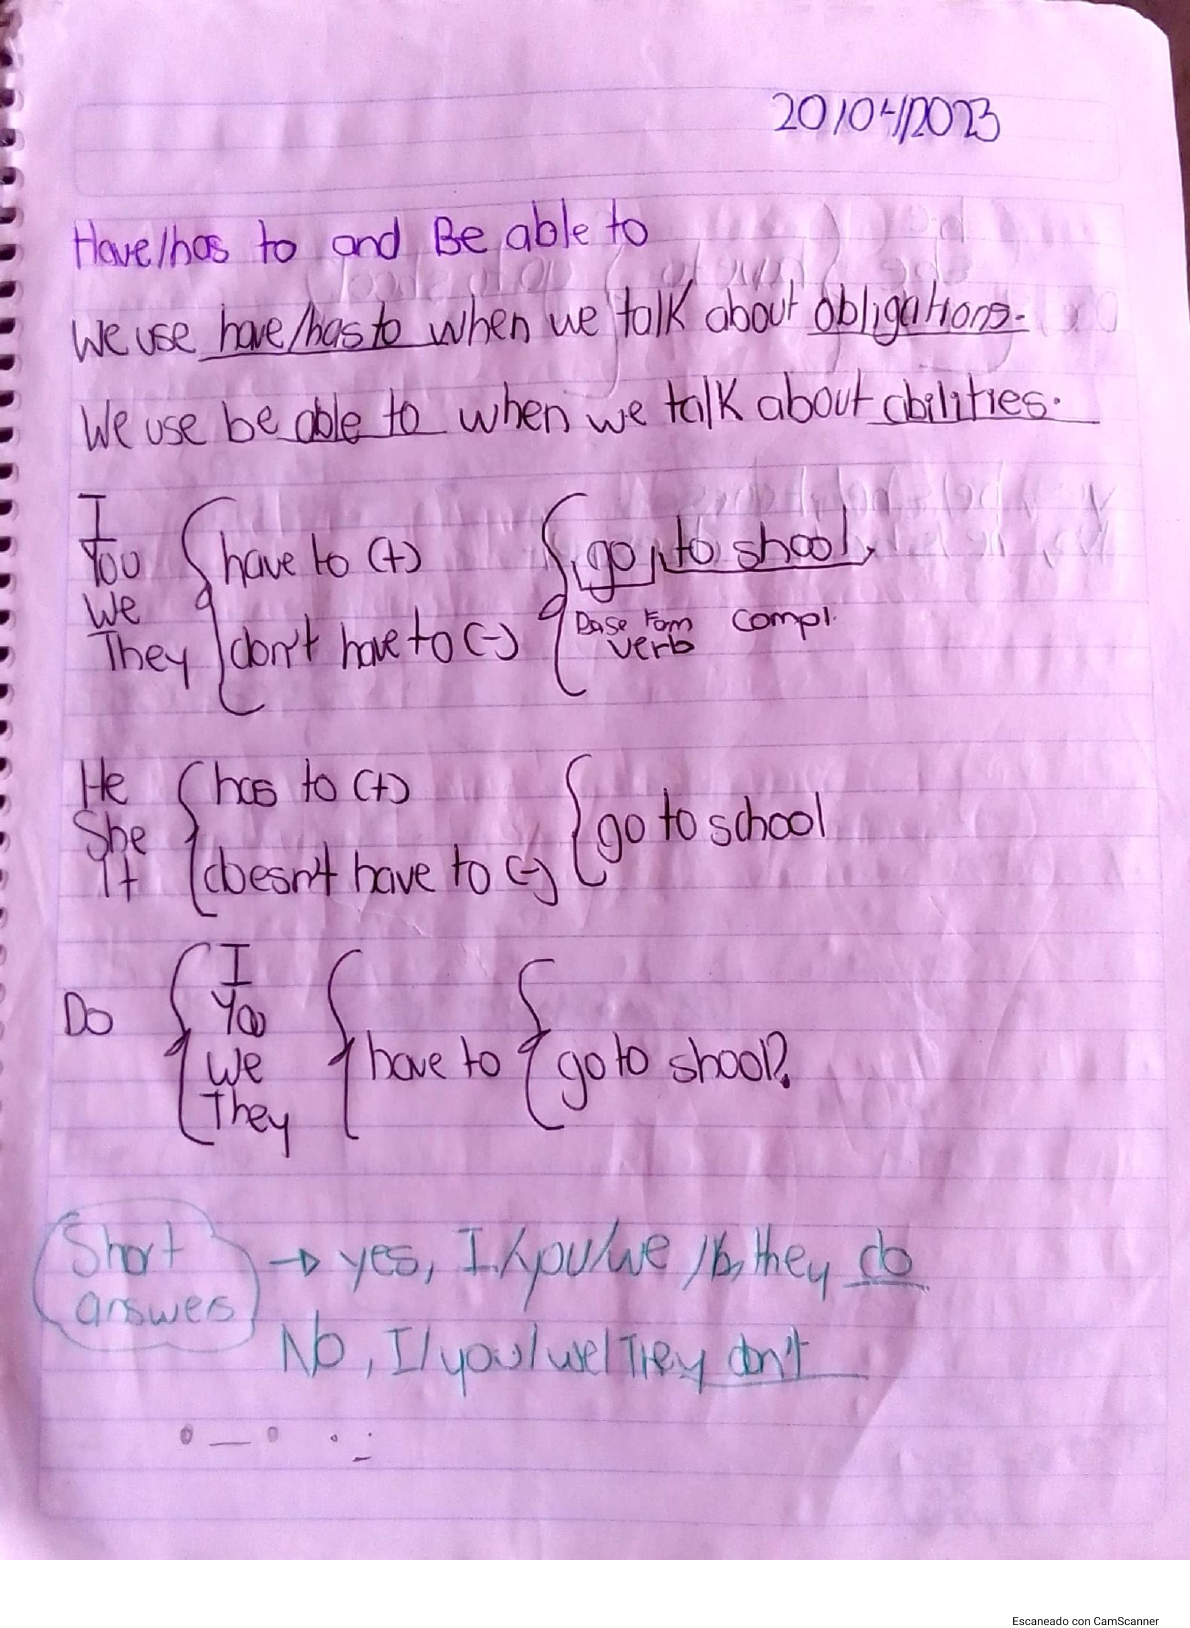 20/04/2023
Have/has to and Be able to
We use have/has to when we talk about obligations.
We use be able to when we talk about abilities.
I
You
We
They
have to (+)
don't have to (-)
go to shool
Base Fom verb
Compl.
He
She
It
has to (+)
doesn't have to (-)
go to school
Do
I
You
We
They
have to
go to shool?
Short answers
→ yes, I/you/we / they do
No, I/you/we/They don't
Escaneado con CamScanner